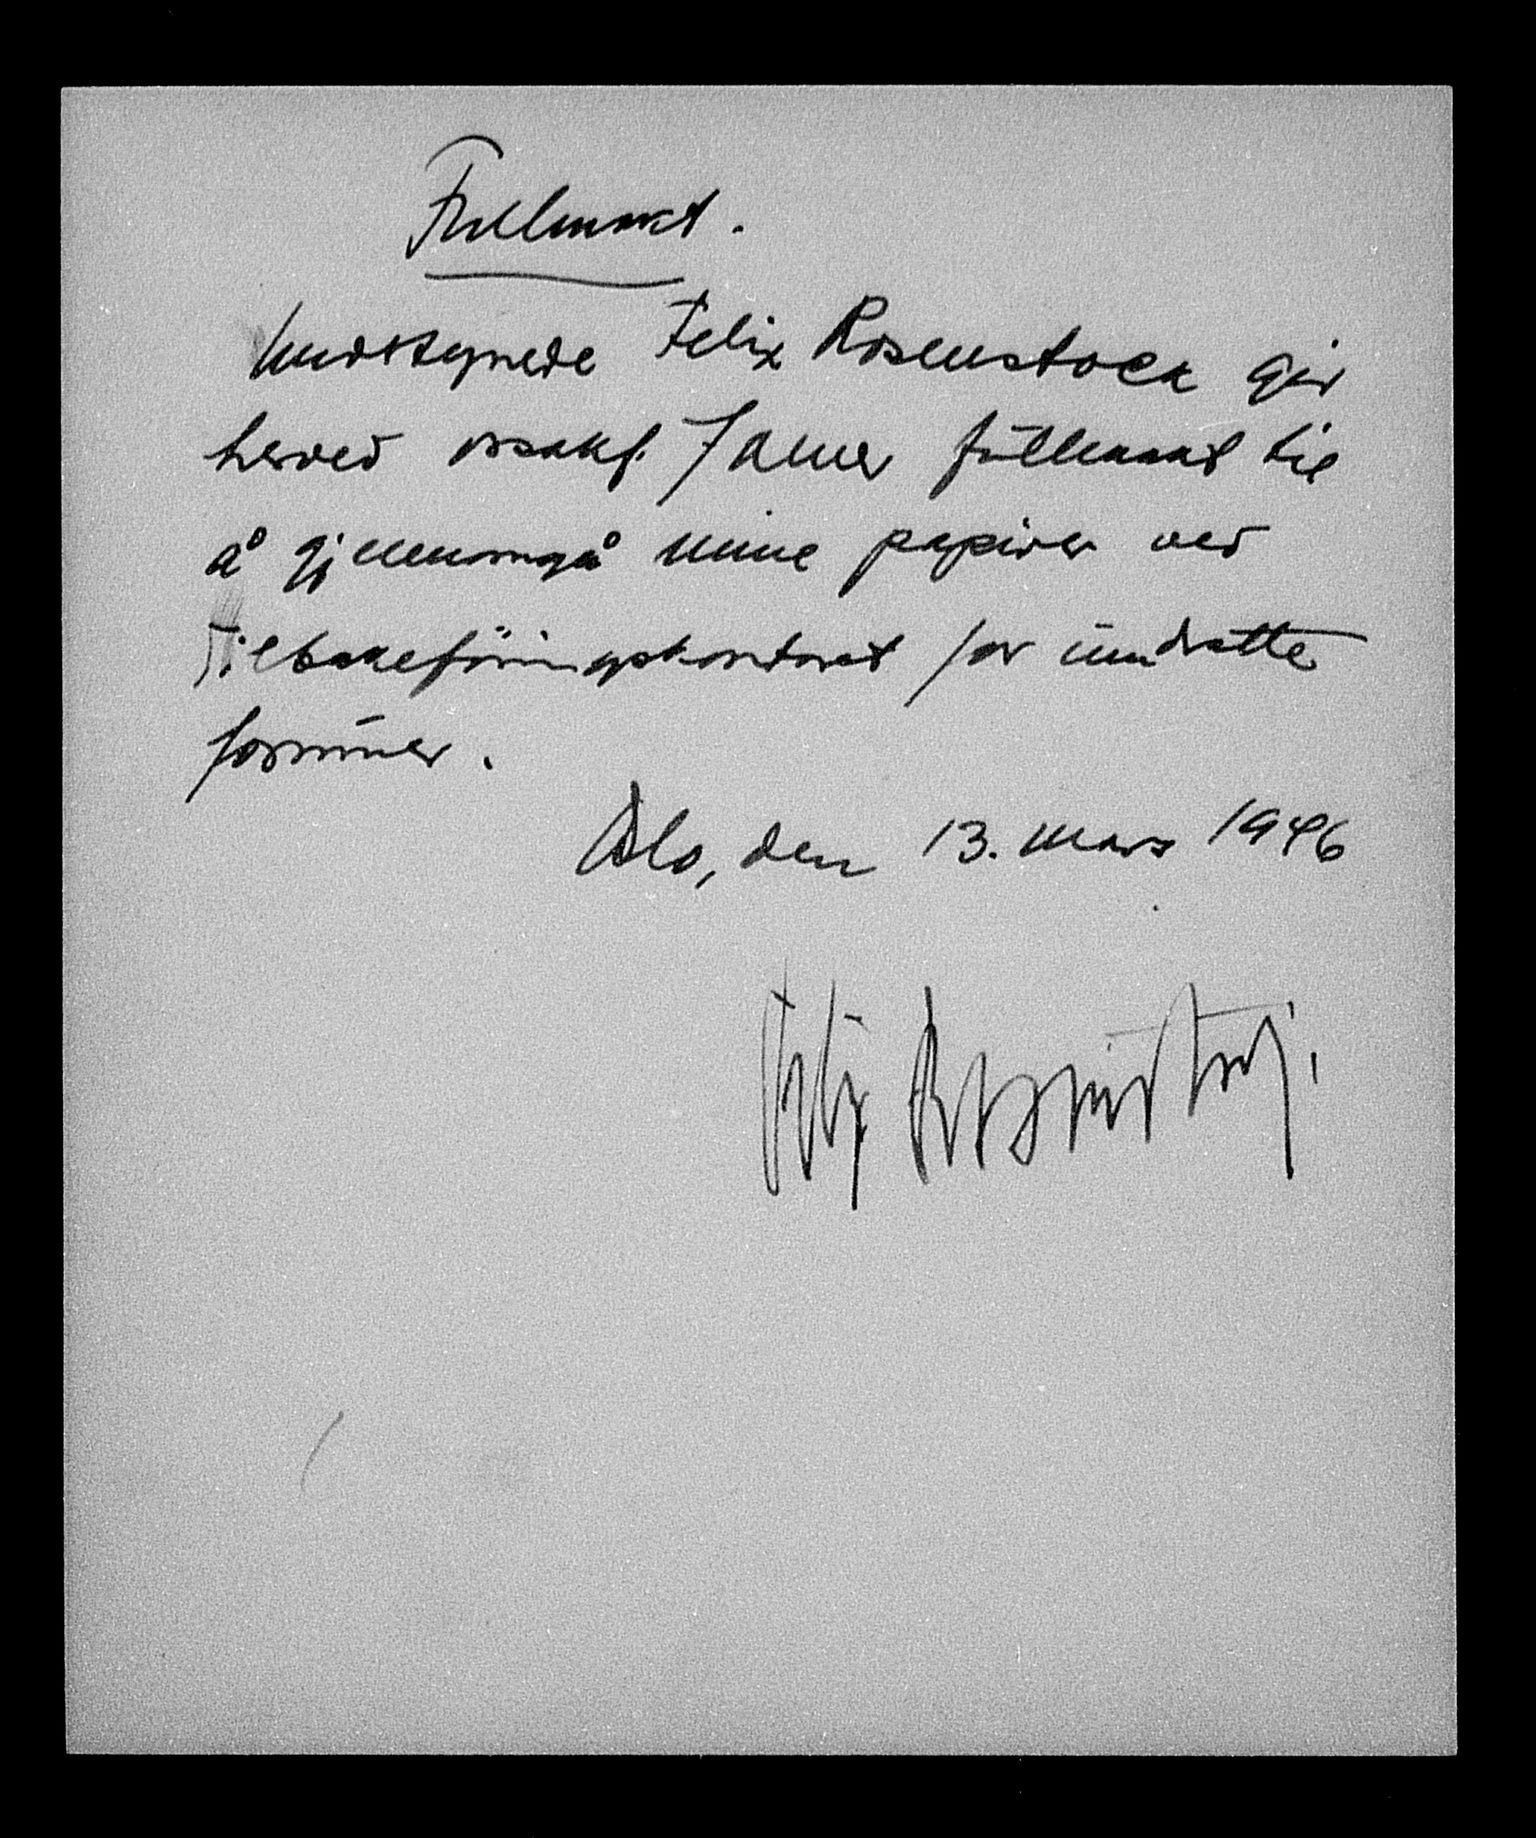 Fullmakt.
Undertegnede Felix Rosenstock gir
herved orsakf. Jamer fullmakt til
å gjennomgå mine papirer ved
Tilbakeføringskontoret for inndratte
formuer.
Oslo, den 13. mars 1946
Felix Rosenstock.